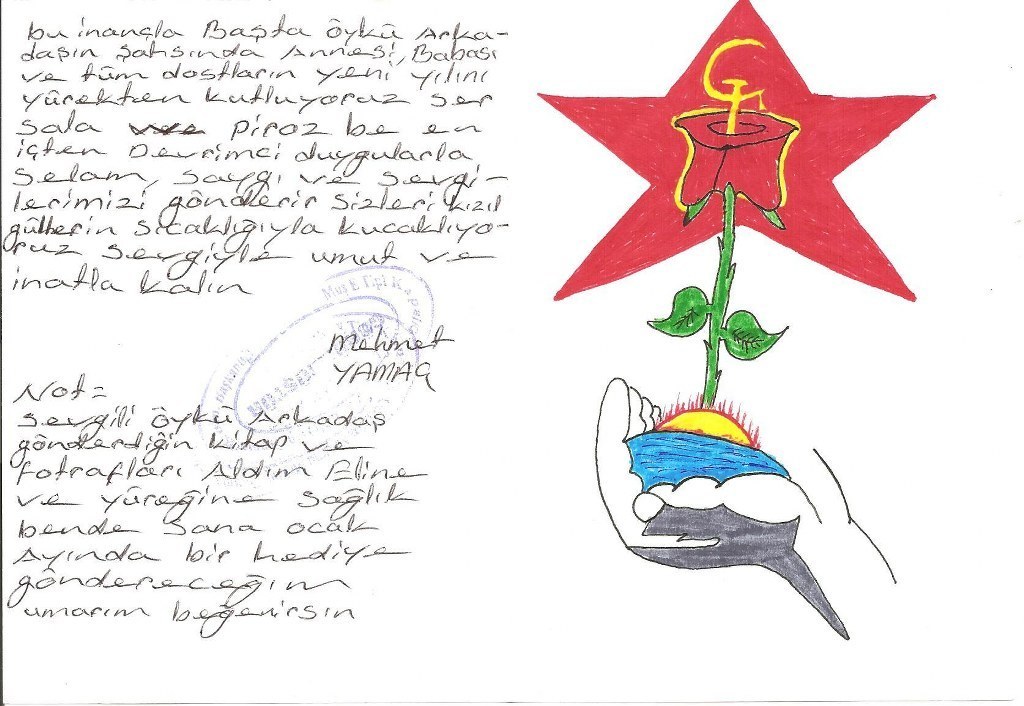 bu inançla Başta öykü Arka-
daşın şahsında Annesi, Babası
ve tüm dostların yeni yılını
yürekten kutluyoruz ser
sala piroz be en
içten Devrimci duygularla
Selam, saygı ve sevgi-
lerimizi gönderir sizleri kızıl
güllerin sıcaklığıyla kucaklıyo-
ruz sevgiyle umut ve
inatla kalın
Muş E Tipi Kapalı
Mehmet
YAMAÇ
Not=
Sevgili öykü Arkadaş
gönderdiğin kitap ve
fotrafları Aldım Eline
ve yüreğine sağlık
bende sana ocak
Ayında bir hediye
göndereceğim
umarım beğenirsin